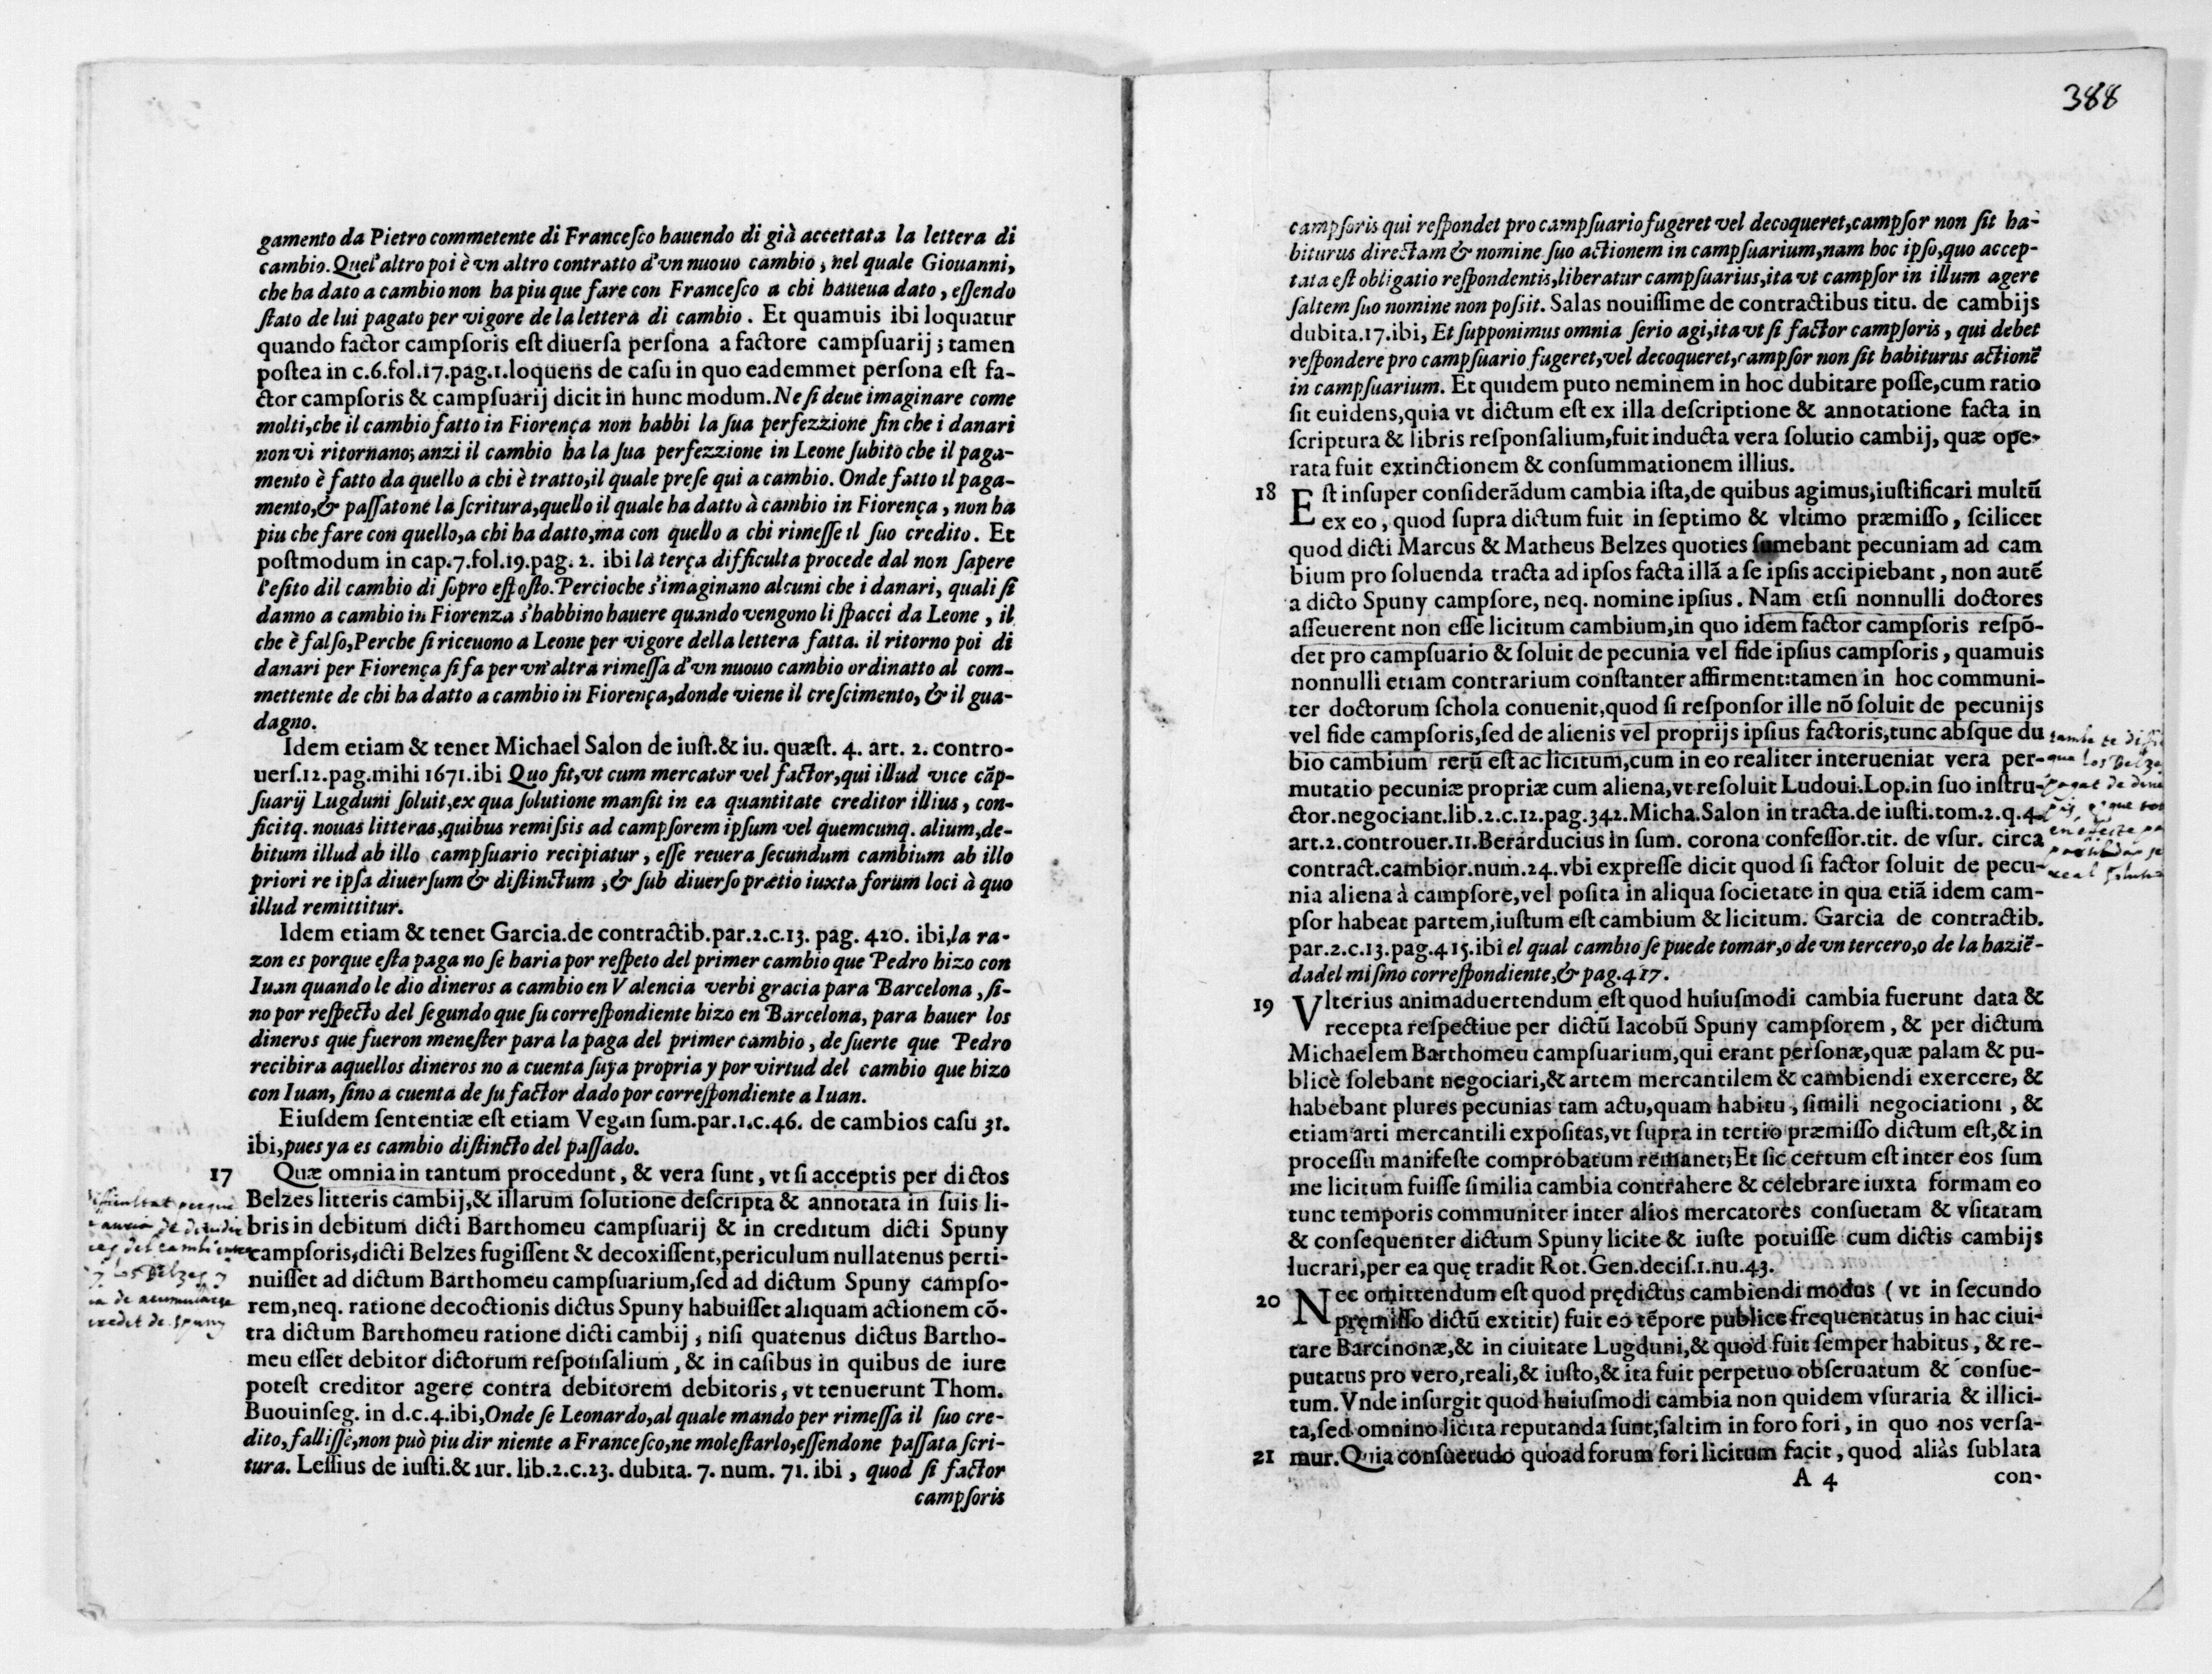 gamento da Pietro commetente di Franceſco hauendo di già accettata la lettera di
cambio. Quel'altro poi è vn altro contratto d'vn nuouo cambio, nel quale Giouanni,
che ha dato a cambio non ha piu que fare con Franceſco a chi haueua dato, eſſendo
ſtato de lui pagato per vigore de la lettera di cambio. Et quamuis ibi loquatur
quando factor campſoris eſt diuerſa perſona a factore campſuarij; tamen
poſtea in c.6.fol.17.pag.1.loquens de caſu in quo eademmet perſona eſt fa-
ctor campſoris & campſuarij dicit in hunc modum. Ne ſi deue imaginare come
molti, che il cambio fatto in Fiorença non habbi la ſua perfezzione fin che i danari
non vi ritornano; anzi il cambio ha la ſua perfezzione in Leone ſubito che il paga-
mento è fatto da quello a chi è tratto, il quale preſe qui a cambio. Onde fatto il paga-
mento, & paſſatone la ſcritura, quello il quale ha datto à cambio in Fiorença, non ha
piu che fare con quello, a chi ha datto, ma con quello a chi rimeſſe il ſuo credito. Et
poſtmodum in cap.7.fol.19.pag. 2. ibi la terça difficulta procede dal non ſapere
l'eſito dil cambio di ſopro eſpoſto. Percioche s'imaginano alcuni che i danari, quali ſi
danno a cambio in Fiorenza s'habbino hauere quando vengono li ſpacci da Leone, il
che è falſo, Perche ſi riceuono a Leone per vigore della lettera fatta. il ritorno poi di
danari per Fiorença ſi fa per vn'altra rimeſſa d'vn nuouo cambio ordinatto al com-
mettente de chi ha datto a cambio in Fiorença, donde viene il creſcimento, & il gua-
dagno.
Idem etiam & tenet Michael Salon de iuſt.& iu. quæſt. 4. art. 2. contro-
uerſ.12.pag.mihi 1671.ibi Quo fit, vt cum mercator vel factor, qui illud vice cãp-
ſuarij Lugduni ſoluit, ex qua ſolutione manſit in ea quantitate creditor illius, con-
ficitq. nouas litteras, quibus remiſſis ad campſorem ipſum vel quemcunq. alium, de-
bitum illud ab illo campſuario recipiatur, eſſe reuera ſecundum cambium ab illo
priori re ipſa diuerſum & diſtinctum, & ſub diuerſo prætio iuxta forum loci à quo
illud remittitur.
Idem etiam & tenet Garcia.de contractib.par.2.c.13. pag. 420. ibi, la ra-
zon es porque eſta paga no ſe haria por reſpeto del primer cambio que Pedro hizo con
Iuan quando le dio dineros a cambio en Valencia verbi gracia para Barcelona, ſi-
no por reſpecto del ſegundo que ſu correſpondiente hizo en Barcelona, para hauer los
dineros que fueron meneſter para la paga del primer cambio, de ſuerte que Pedro
recibira aquellos dineros no a cuenta ſuya propria y por virtud del cambio que hizo
con Iuan, ſino a cuenta de ſu factor dado por correſpondiente a Iuan.
Eiuſdem ſententiæ eſt etiam Veg.in ſum.par.1.c.46. de cambios caſu 31.
ibi, pues ya es cambio diſtincto del paſſado.
17 Quæ omnia in tantum procedunt, & vera ſunt, vt ſi acceptis per dictos
Belzes litteris cambij, & illarum ſolutione deſcripta & annotata in ſuis li-
bris in debitum dicti Barthomeu campſuarij & in creditum dicti Spuny
campſoris, dicti Belzes fugiſſent & decoxiſſent, periculum nullatenus perti-
nuiſſet ad dictum Barthomeu campſuarium, ſed ad dictum Spuny campſo-
rem, neq. ratione decoctionis dictus Spuny habuiſſet aliquam actionem cõ-
tra dictum Barthomeu ratione dicti cambij, niſi quatenus dictus Bartho-
meu eſſet debitor dictorum reſponſalium, & in caſibus in quibus de iure
poteſt creditor agere contra debitorem debitoris, vt tenuerunt Thom.
Buouinſeg. in d.c.4.ibi, Onde ſe Leonardo, al quale mando per rimeſſa il ſuo cre-
dito, falliſſe, non può piu dir niente a Franceſco, ne moleſtarlo, eſſendone paſſata ſcri-
tura. Leſſius de iuſti.& iur. lib.2.c.23. dubita. 7. num. 71. ibi, quod ſi factor
campſoris
388
campſoris qui reſpondet pro campſuario fugeret vel decoqueret, campſor non ſit ha-
biturus directam & nomine ſuo actionem in campſuarium, nam hoc ipſo, quo accep-
tata eſt obligatio reſpondentis, liberatur campſuarius, ita vt campſor in illum agere
ſaltem ſuo nomine non poſſit. Salas nouiſſime de contractibus titu. de cambijs
dubita.17.ibi, Et ſupponimus omnia ſerio agi, ita vt ſi factor campſoris, qui debet
reſpondere pro campſuario fugeret, vel decoqueret, campſor non ſit habiturus actionẽ
in campſuarium. Et quidem puto neminem in hoc dubitare poſſe, cum ratio
ſit euidens, quia vt dictum eſt ex illa deſcriptione & annotatione facta in
ſcriptura & libris reſponſalium, fuit inducta vera ſolutio cambij, quæ ope-
rata fuit extinctionem & conſummationem illius.
18 Eſt inſuper conſiderãdum cambia iſta, de quibus agimus, iuſtificari multũ
ex eo, quod ſupra dictum fuit in ſeptimo & vltimo præmiſſo, ſcilicet
quod dicti Marcus & Matheus Belzes quoties ſumebant pecuniam ad cam
bium pro ſoluenda tracta ad ipſos facta illã a ſe ipſis accipiebant, non autẽ
a dicto Spuny campſore, neq. nomine ipſius. Nam etſi nonnulli doctores
aſſeuerent non eſſe licitum cambium, in quo idem factor campſoris reſpõ-
det pro campſuario & ſoluit de pecunia vel fide ipſius campſoris, quamuis
nonnulli etiam contrarium conſtanter affirment: tamen in hoc communi-
ter doctorum ſchola conuenit, quod ſi reſponſor ille nõ ſoluit de pecunijs
vel fide campſoris, ſed de alienis vel proprijs ipſius factoris, tunc abſque du
bio cambium rerũ eſt ac licitum, cum in eo realiter interueniat vera per-
mutatio pecuniæ propriæ cum aliena, vt reſoluit Ludoui. Lop. in ſuo inſtru-
ctor.negociant.lib.2.c.12.pag.342. Micha. Salon in tracta.de iuſti.tom.2.q.4.
art.2.controuer.11. Berarducius in ſum. corona confeſſor.tit. de vſur. circa
contract.cambior.num.24. vbi expreſſe dicit quod ſi factor ſoluit de pecu-
nia aliena à campſore, vel poſita in aliqua ſocietate in qua etiã idem cam-
pſor habeat partem, iuſtum eſt cambium & licitum. Garcia de contractib.
par.2.c.13.pag.415.ibi el qual cambio ſe puede tomar, o de vn tercero, o de la haziẽ-
dadel miſmo correſpondiente, & pag.417.
19 Vlterius animaduertendum eſt quod huiuſmodi cambia fuerunt data &
recepta reſpectiue per dictũ Iacobũ Spuny campſorem, & per dictum
Michaelem Barthomeu campſuarium, qui erant perſonæ, quæ palam & pu-
blicè ſolebant negociari, & artem mercantilem & cambiendi exercere, &
habebant plures pecunias tam actu, quam habitu, ſimili negociationi, &
etiam arti mercantili expoſitas, vt ſupra in tertio præmiſſo dictum eſt, & in
proceſſu manifeſte comprobatum remanet; Et ſic certum eſt inter eos ſum
me licitum fuiſſe ſimilia cambia contrahere & celebrare iuxta formam eo
tunc temporis communiter inter alios mercatores conſuetam & vſitatam
& conſequenter dictum Spuny licite & iuſte potuiſſe cum dictis cambijs
lucrari, per ea quę tradit Rot. Gen. deciſ.1.nu.43.
20 Nec omittendum eſt quod prędictus cambiendi modus (vt in ſecundo
pręmiſſo dictũ extitit) fuit eo tẽpore publice frequentatus in hac ciui-
tate Barcinonæ, & in ciuitate Lugduni, & quod fuit ſemper habitus, & re-
putatus pro vero, reali, & iuſto, & ita fuit perpetuo obſeruatum & conſue-
tum. Vnde inſurgit quod huiuſmodi cambia non quidem vſuraria & illici-
ta, ſed omnino licita reputanda ſunt, ſaltim in foro fori, in quo nos verſa-
21 mur. Quia conſuetudo quoad forum fori licitum facit, quod aliàs ſublata
A 4 con-